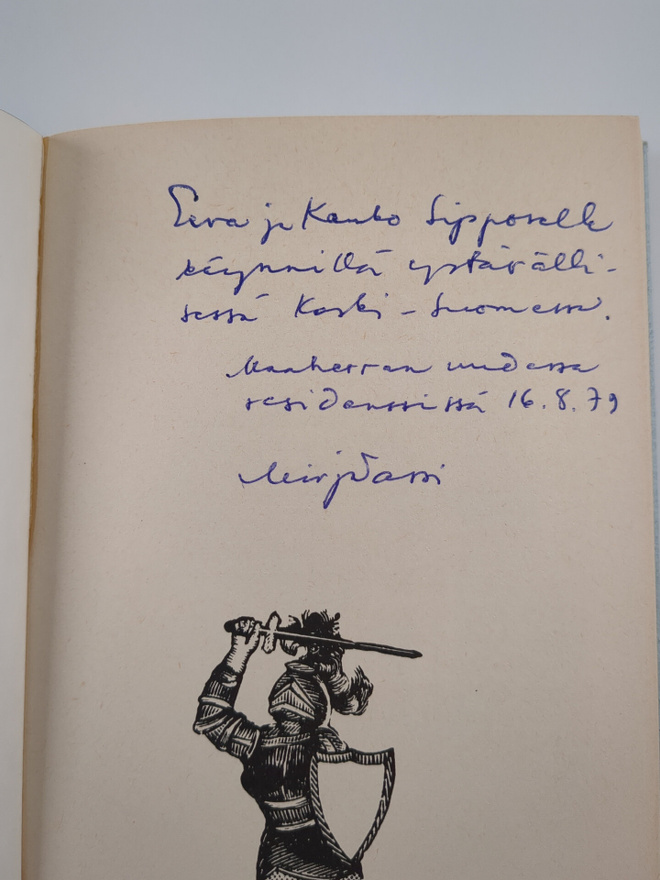 Eeva ja Kauko Sipposelle
käynnillä ystävälli-
sessä Keski-Suomessa.
Maaherran uudessa
residenssissä 16.8.79